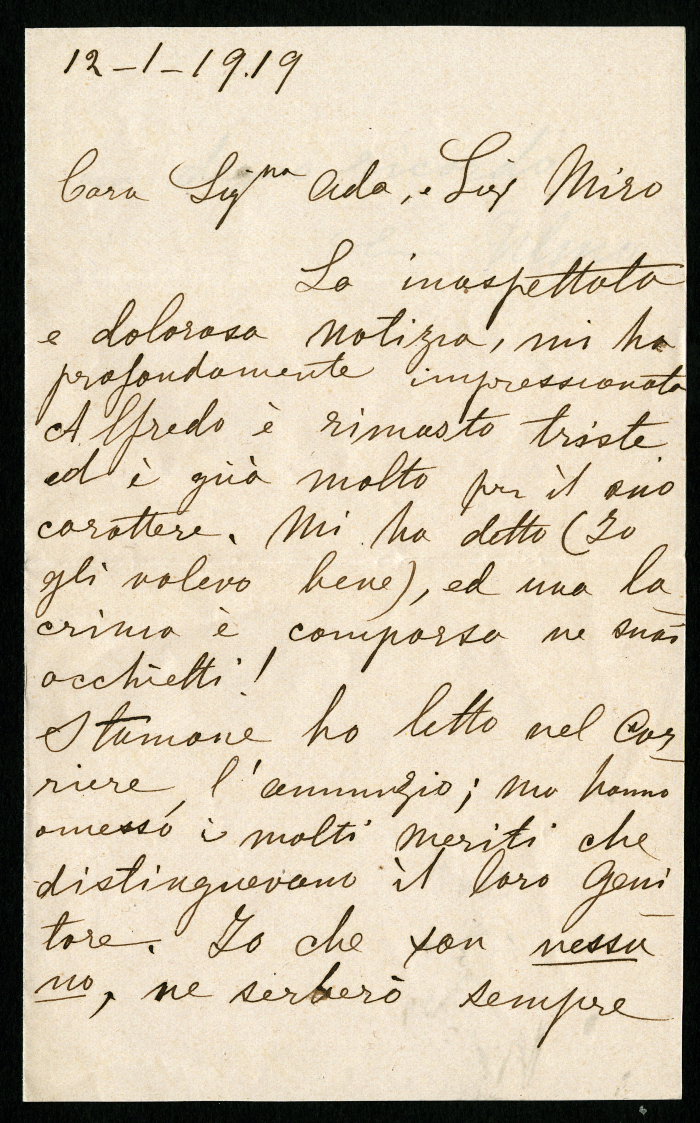 12-1-19.19
Cara Sig.na Ada, e Sig. Miro
La inaspettata
e dolorosa notizia, mi ha
profondamente impressionato
Alfredo è rimasto triste
ed è già molto per il suo
carattere. Mi ha detto (Io
gli volevo bene), ed una la
crima è comparsa ne suoi
occhietti!
Stamane ho letto nel Cor
riere l'annunzio; ma hanno
omesso i molti meriti che
distinguevano il loro Geni
tore. Io che son nessu
no, ne serberò sempre